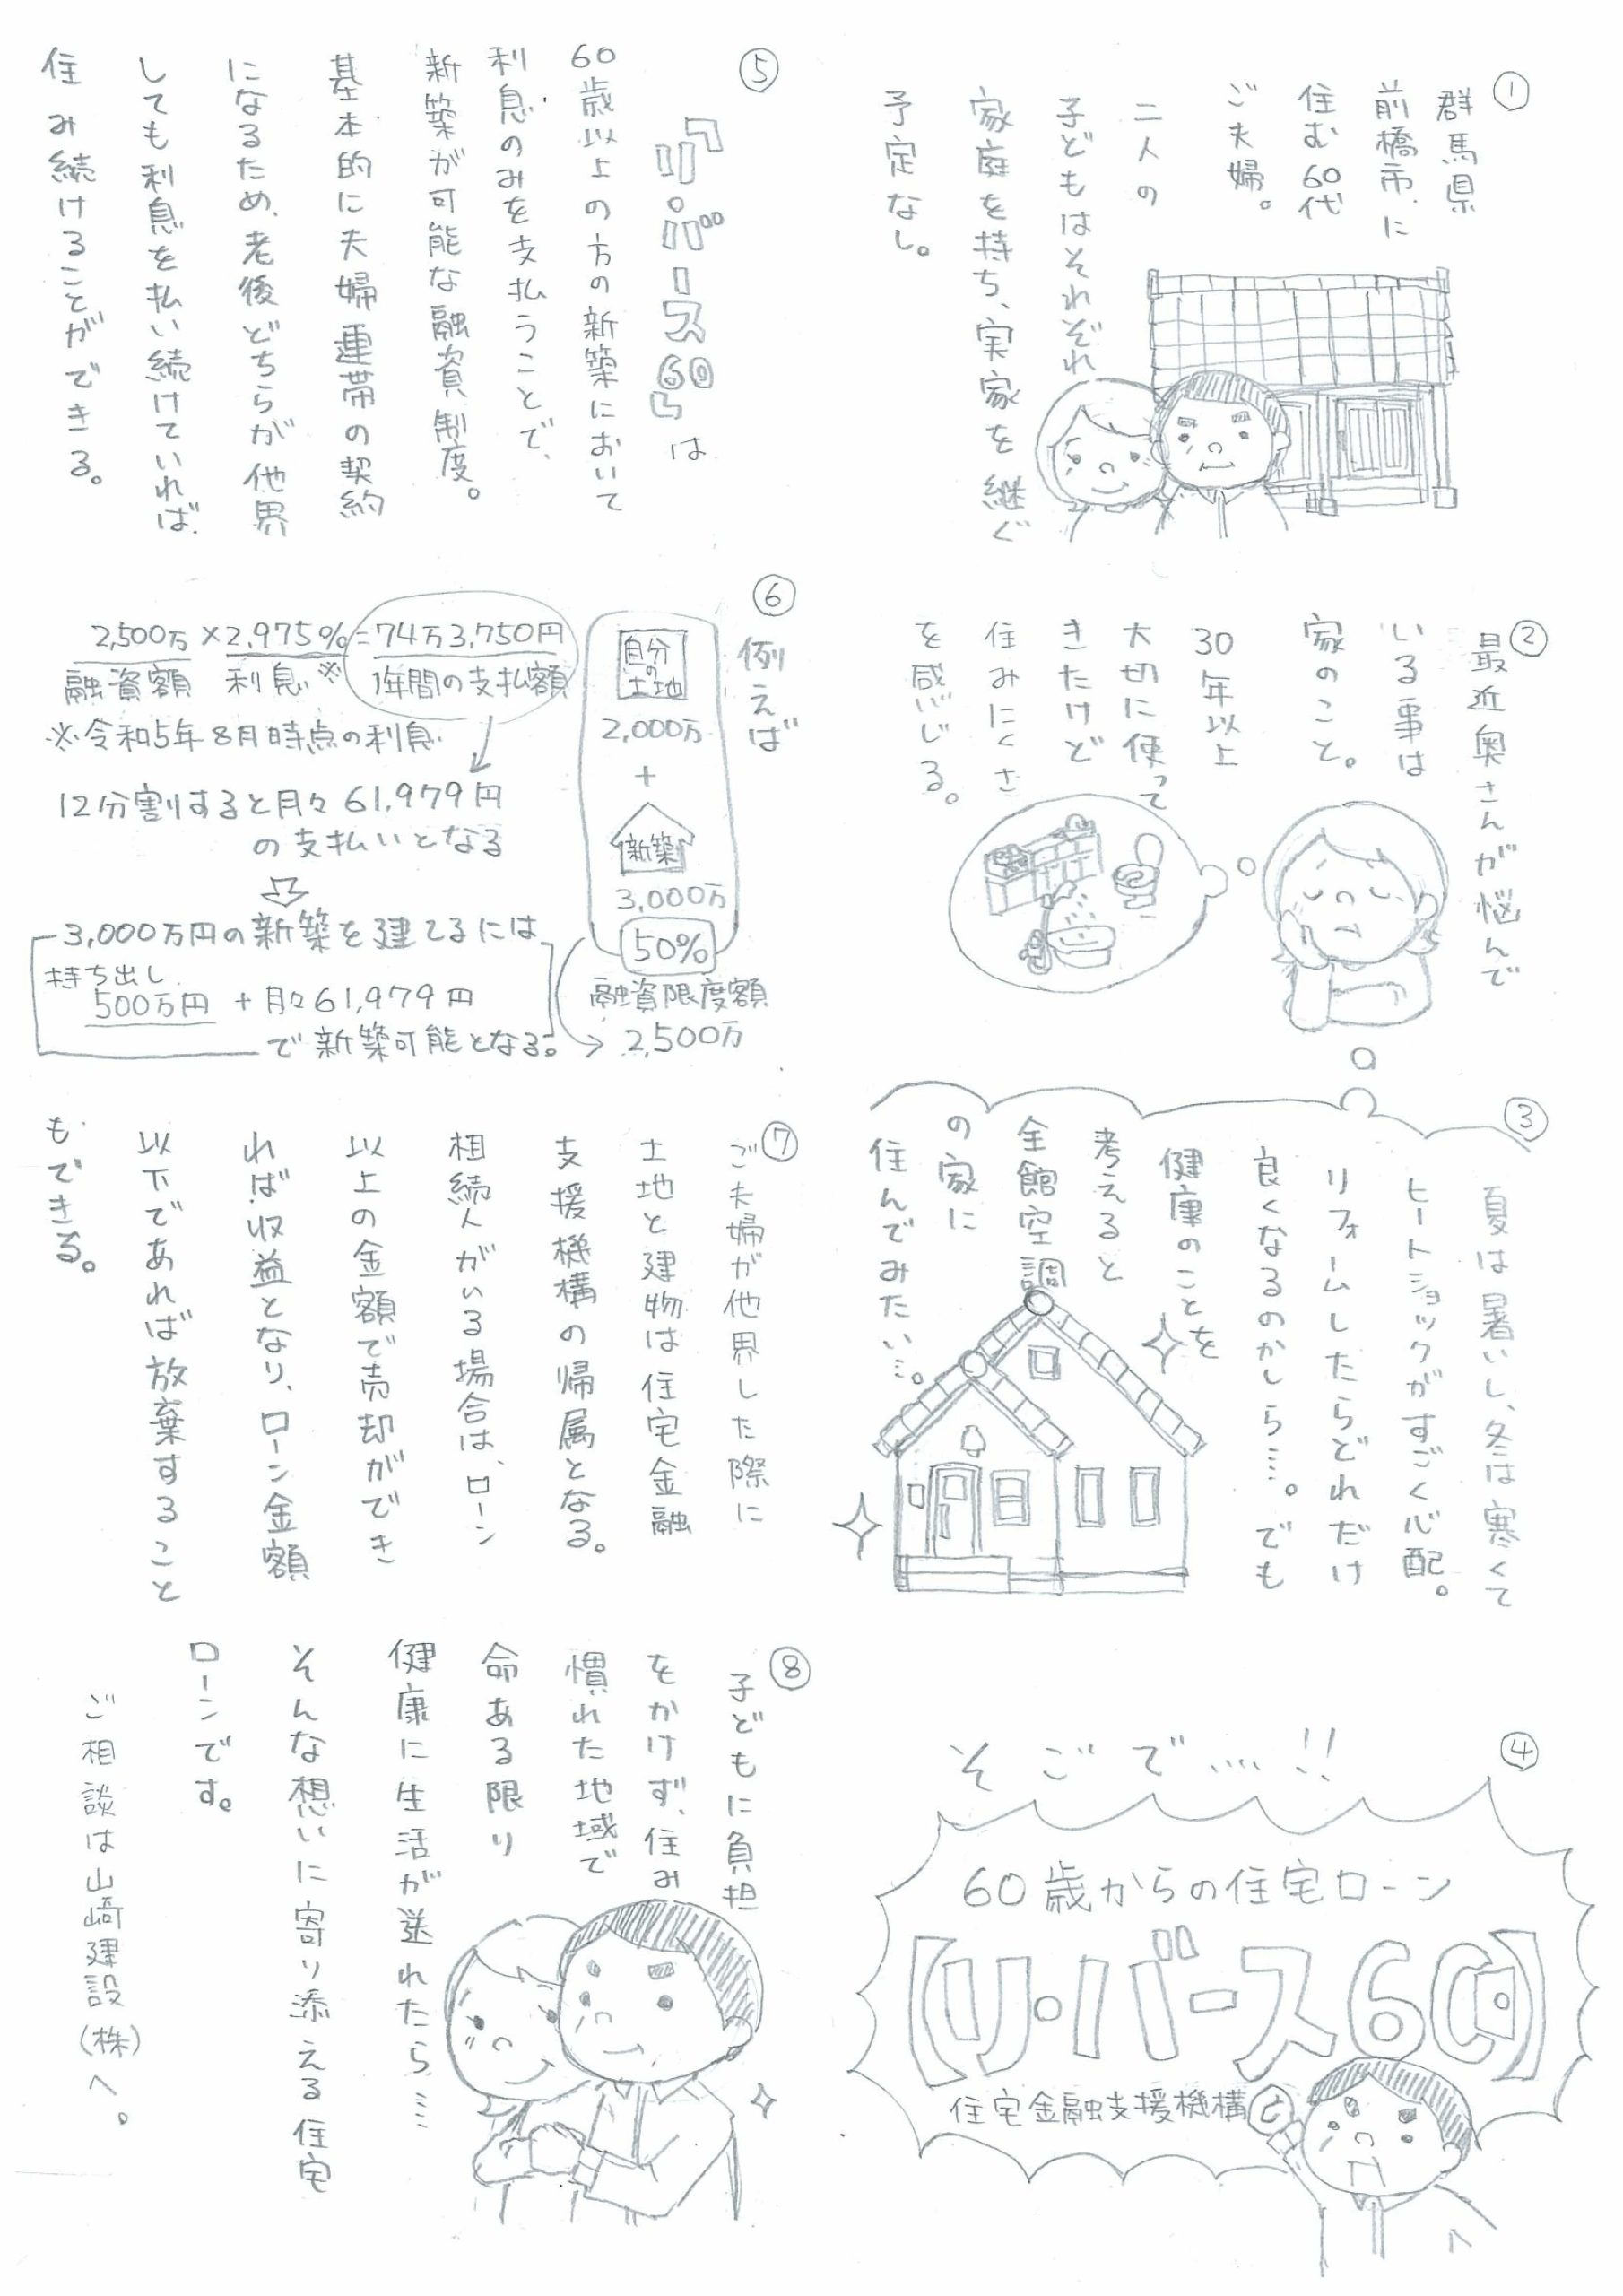 ①
群馬県
前橋市に
住む60代
ご夫婦。
二人の
子どもはそれぞれ
家庭を持ち、実家を継ぐ
予定なし。
②
最近奥さんが悩んで
いる事は
家のこと。
30年以上
大切に使って
きたけど
住みにくさ
を感じる。
③
夏は暑いし、冬は寒くて
ヒートショックがすごく心配。
リフォームしたらどれだけ
良くなるのかしら…。でも
健康のことを
考えると
全館空調
の家に
住んでみたい…。
④
そこで….!!
60歳からの住宅ローン
【リ・バース60】
住宅金融支援機構
⑤
「リ・バース60」は
60歳以上の方の新築において
利息のみを支払うことで、
新築が可能な融資制度。
基本的に夫婦連帯の契約
になるため、老後どちらが他界
しても利息を払い続けていれば
住み続けることができる。
⑥
例えば
自分の土地
2,000万
+
新築
3,000万
50%
融資限度額
2,500万
2,500万×2.975%=74万3,750円
融資額 利息※ 1年間の支払額
※令和5年8月時点の利息
12分割すると月々61,979円
の支払いとなる
3,000万円の新築を建てるには
持ち出し
500万円+月々61,979円
で新築可能となる。
⑦
ご夫婦が他界した際に
土地と建物は住宅金融
支援機構の帰属となる。
相続人がいる場合は、ローン
以上の金額で売却ができ
れば収益となり、ローン金額
以下であれば放棄すること
もできる。
⑧
子どもに負担
をかけず、住み
慣れた地域で
命ある限り
健康に生活が送れたら…
そんな想いに寄り添える住宅
ローンです。
ご相談は山﨑建設(株)へ。